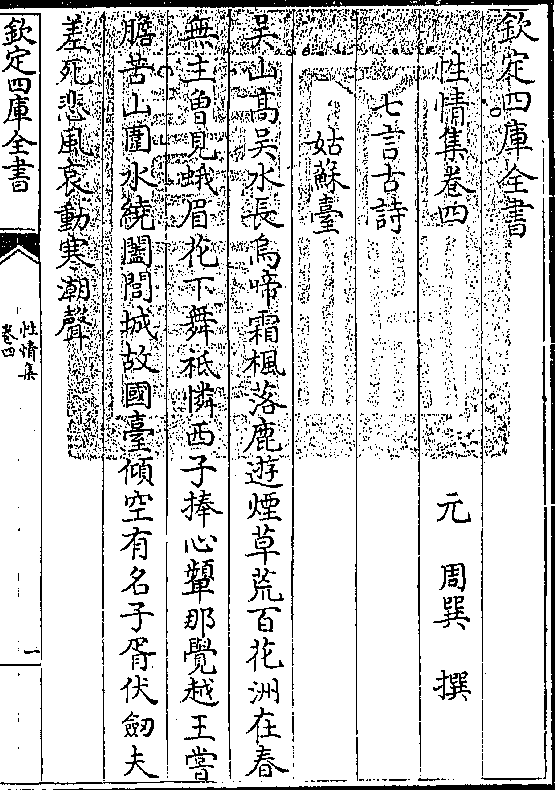 欽定四庫全書
性情集卷四
元　周巽　撰
七言古詩
姑蘇臺
吴山髙吴水長烏啼霜楓落鹿遊煙草荒百花洲在春
無主曽見蛾眉花下舞祗憐西子捧心顰那覺越王嘗
膽苦山圍水繞闔閭城故國臺傾空有名子胥伏劒夫
差死悲風哀動寒潮聲
欽定四庫全書
性情集
卷四
一